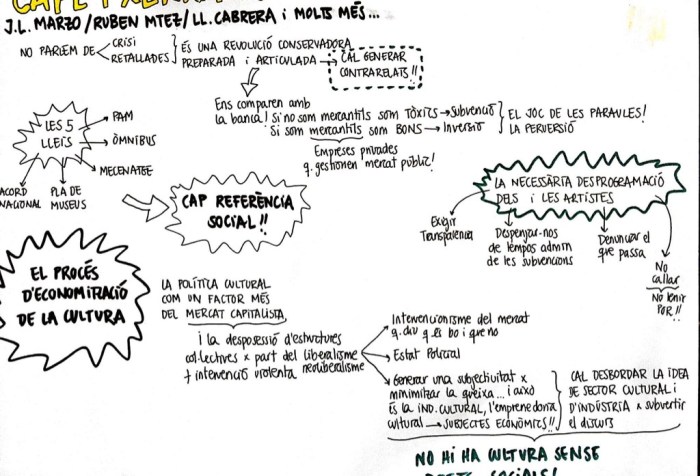 J.L. MARZO / RUBEN MTEZ / LL. CABRERA i MOLTS MÉS...
NO PARLEM DE
CRISI
RETALLADES
ÉS UNA REVOLUCIÓ CONSERVADORA
PREPARADA i ARTICULADA
CAL GENERAR
CONTRARELATS!!
Ens comparen amb
la banca! Si no som mercantils som TÒXICS → SUBVENCIÓ
Si som mercantils som BONS → INVERSIÓ
EL JOC DE LES PARAULES!
LA PERVERSIÓ
Empreses privades
q. gestionen mercat públic!
LES 5
LLEIS
PAM
ÒMNIBUS
MECENATGE
PLA DE
MUSEUS
ACORD
NACIONAL
CAP REFERÈNCIA
SOCIAL!!
LA NECESSÀRIA DESPROGRAMACIÓ
DELS i LES ARTISTES
Exigir
Transparència
Despenjar-nos
de tempos admin
de les subvencions
Denunciar el
que passa
No
callar
No tenir
POR!!
EL PROCÉS
D'ECONOMITZACIÓ
DE LA CULTURA
LA POLÍTICA CULTURAL
COM UN FACTOR MÉS
DEL MERCAT CAPITALISTA,
i la desposessió d'estructures
col·lectives x part del liberalisme
+ intervenció violenta neoliberalisme
Intervencionisme del mercat
q. diu q és bo i que no
Estat Policial
Generar una subjectivitat x
minimitzar la queixa... i això
És la IND. CULTURAL, l'emprenedoria
cultural → SUBJECTES ECONÒMICS!!
CAL DESBORDAR LA IDEA
DE SECTOR CULTURAL i
D'INDÚSTRIA x subvertir
el discurs
NO HI HA CULTURA SENSE
SOCIALS!